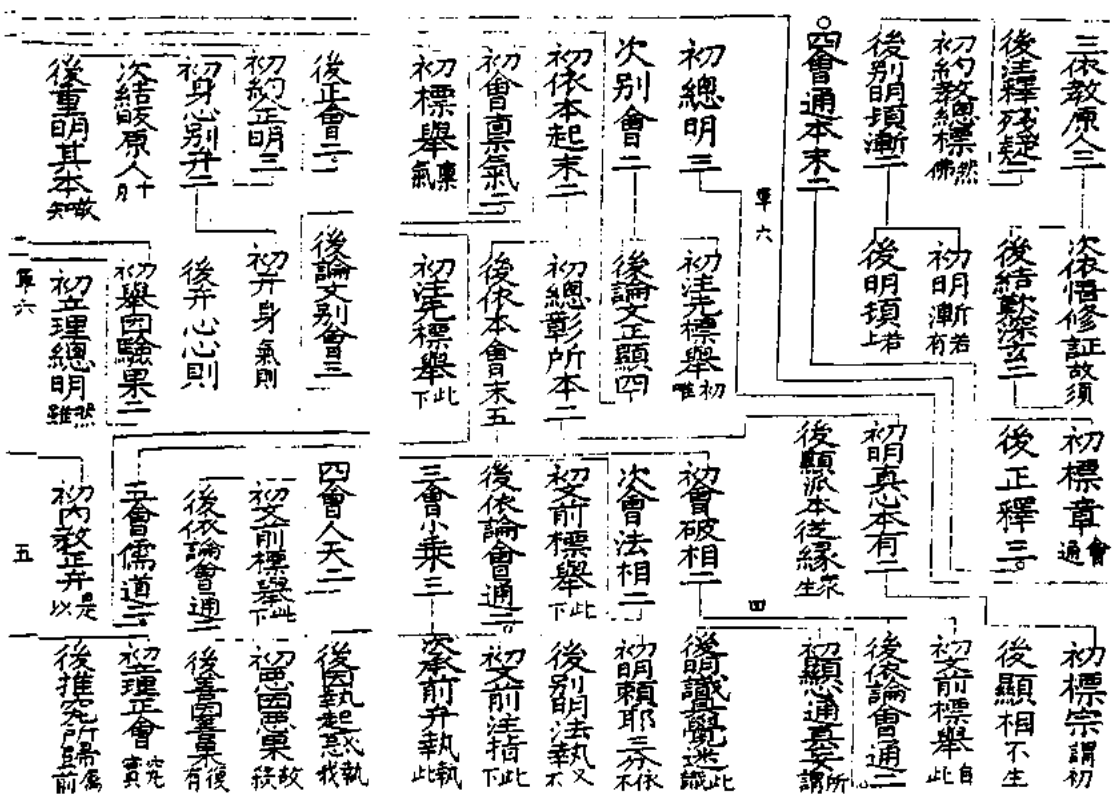 三依教原人三
後注釋殘疑二
初約教總標然佛
後別明頓漸二
四會通本末二
初總明三
次別會二
初依本起末二
初會禀氣二
初標舉禀氣
後正會二
初約正明三
初身心別弁二
次結皈原人
後重明其本
次依悟修証故須
後結歎深玄二
初明漸若有
後明頓若上
軍六
初注先標舉初唯
後論文正顯四
初總彰所本二
後依本會末五
初注先標舉此下
後論文別會三
初弁身氣則
後弁心心則
初舉因驗果二
初立理總明然雖
軍六
初標章會通
後正釋三
初明真心本有二
後顯派本從緣衆生
初會破相二
次會法相二
初文前標舉此下
後依論會通二
三會小乘三
四會人天二
初文前標舉此下
後依論會通二
五會儒道二
初內教正弁是以
五
初標宗謂初
後顯相不生
初文前標舉自此
後依論會通二
初顯通真妄所謂
四
後明識覺迷此識
初明賴耶三分依不
後別明法執又不
初文前注指此下
次承前弁執執此
後因執起惑執我
初惡因惡果故
後善因善果復有
初立理正會究實
後推究所歸前